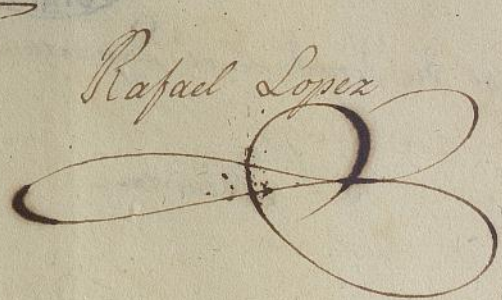 Rafael Lopez